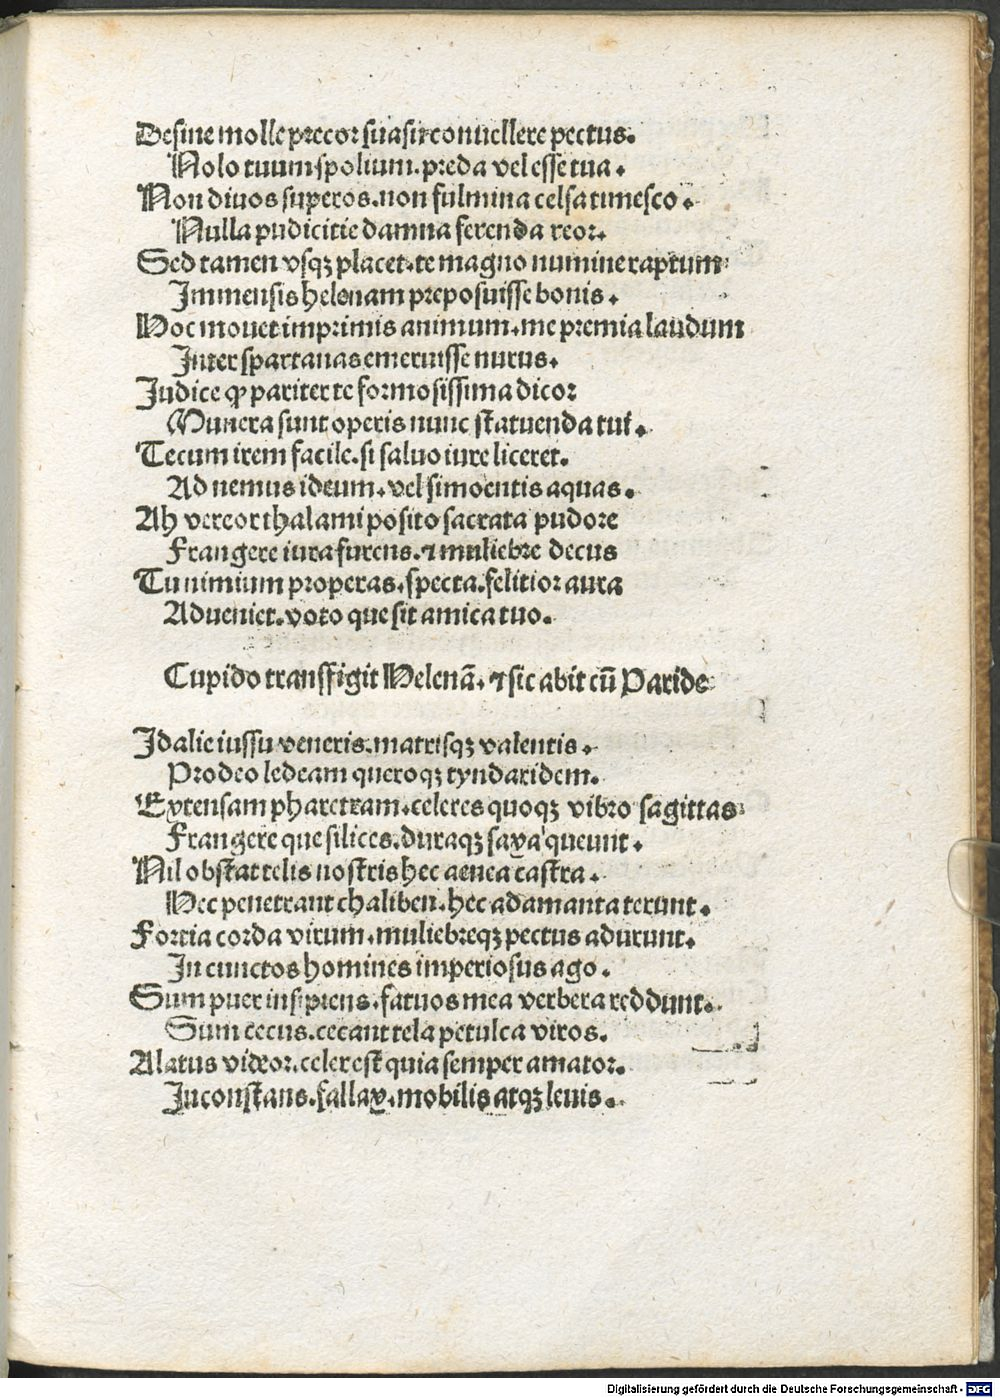 Desine molle precor suasu conuellere pectus.
Nolo tuum spolium. preda vel esse tua.
Non diuos superos. non fulmina celsa timesco.
Nulla pudicitie damna ferenda reor.
Sed tamen vsqꝫ placet. te magno numine raptum:
Immensis helenam preposuisse bonis.
Hoc mouet imprimis animum. me premia laudum
Inter spartanas emeruisse nurus.
Judice ꝙ pariter te formosissima dicor
Munera sunt operis nunc statuenda tui.
Tecum irem facile. si saluo iure liceret.
Ad nemus ideum. vel simoentis aquas.
Ah vereor thalami posito sacrata pudore
Frangere iura furens. ⁊ muliebre decus
Tu nimium properas. specta. felitior aura
Adueniet. voto que sit amica tuo.
Cupido transffigit Helenā. ⁊ sic abit cū Paride
Idalie iussu veneris. matrisqꝫ valentis.
Prodeo ledeam queroqꝫ tyndaridem.
Extensam pharetram. celeres quoqꝫ vibro sagittas:
Frangere que silices. duraqꝫ saxa queunt.
Nil obstat telis nostris hec aenea castra.
Hec penetrant chaliben. hec adamanta terunt.
Fortia corda virum. muliebreqꝫ pectus adurunt.
In cunctos homines imperiosus ago.
Sum puer insipiens. fatuos mea verbera reddunt.
Sum cecus. cecant tela petulca viros.
Alatus videor. celer est quia semper amator.
Inconstans. fallax. mobilis atqꝫ leuis.
Digitalisierung gefördert durch die Deutsche Forschungsgemeinschaft - DFG